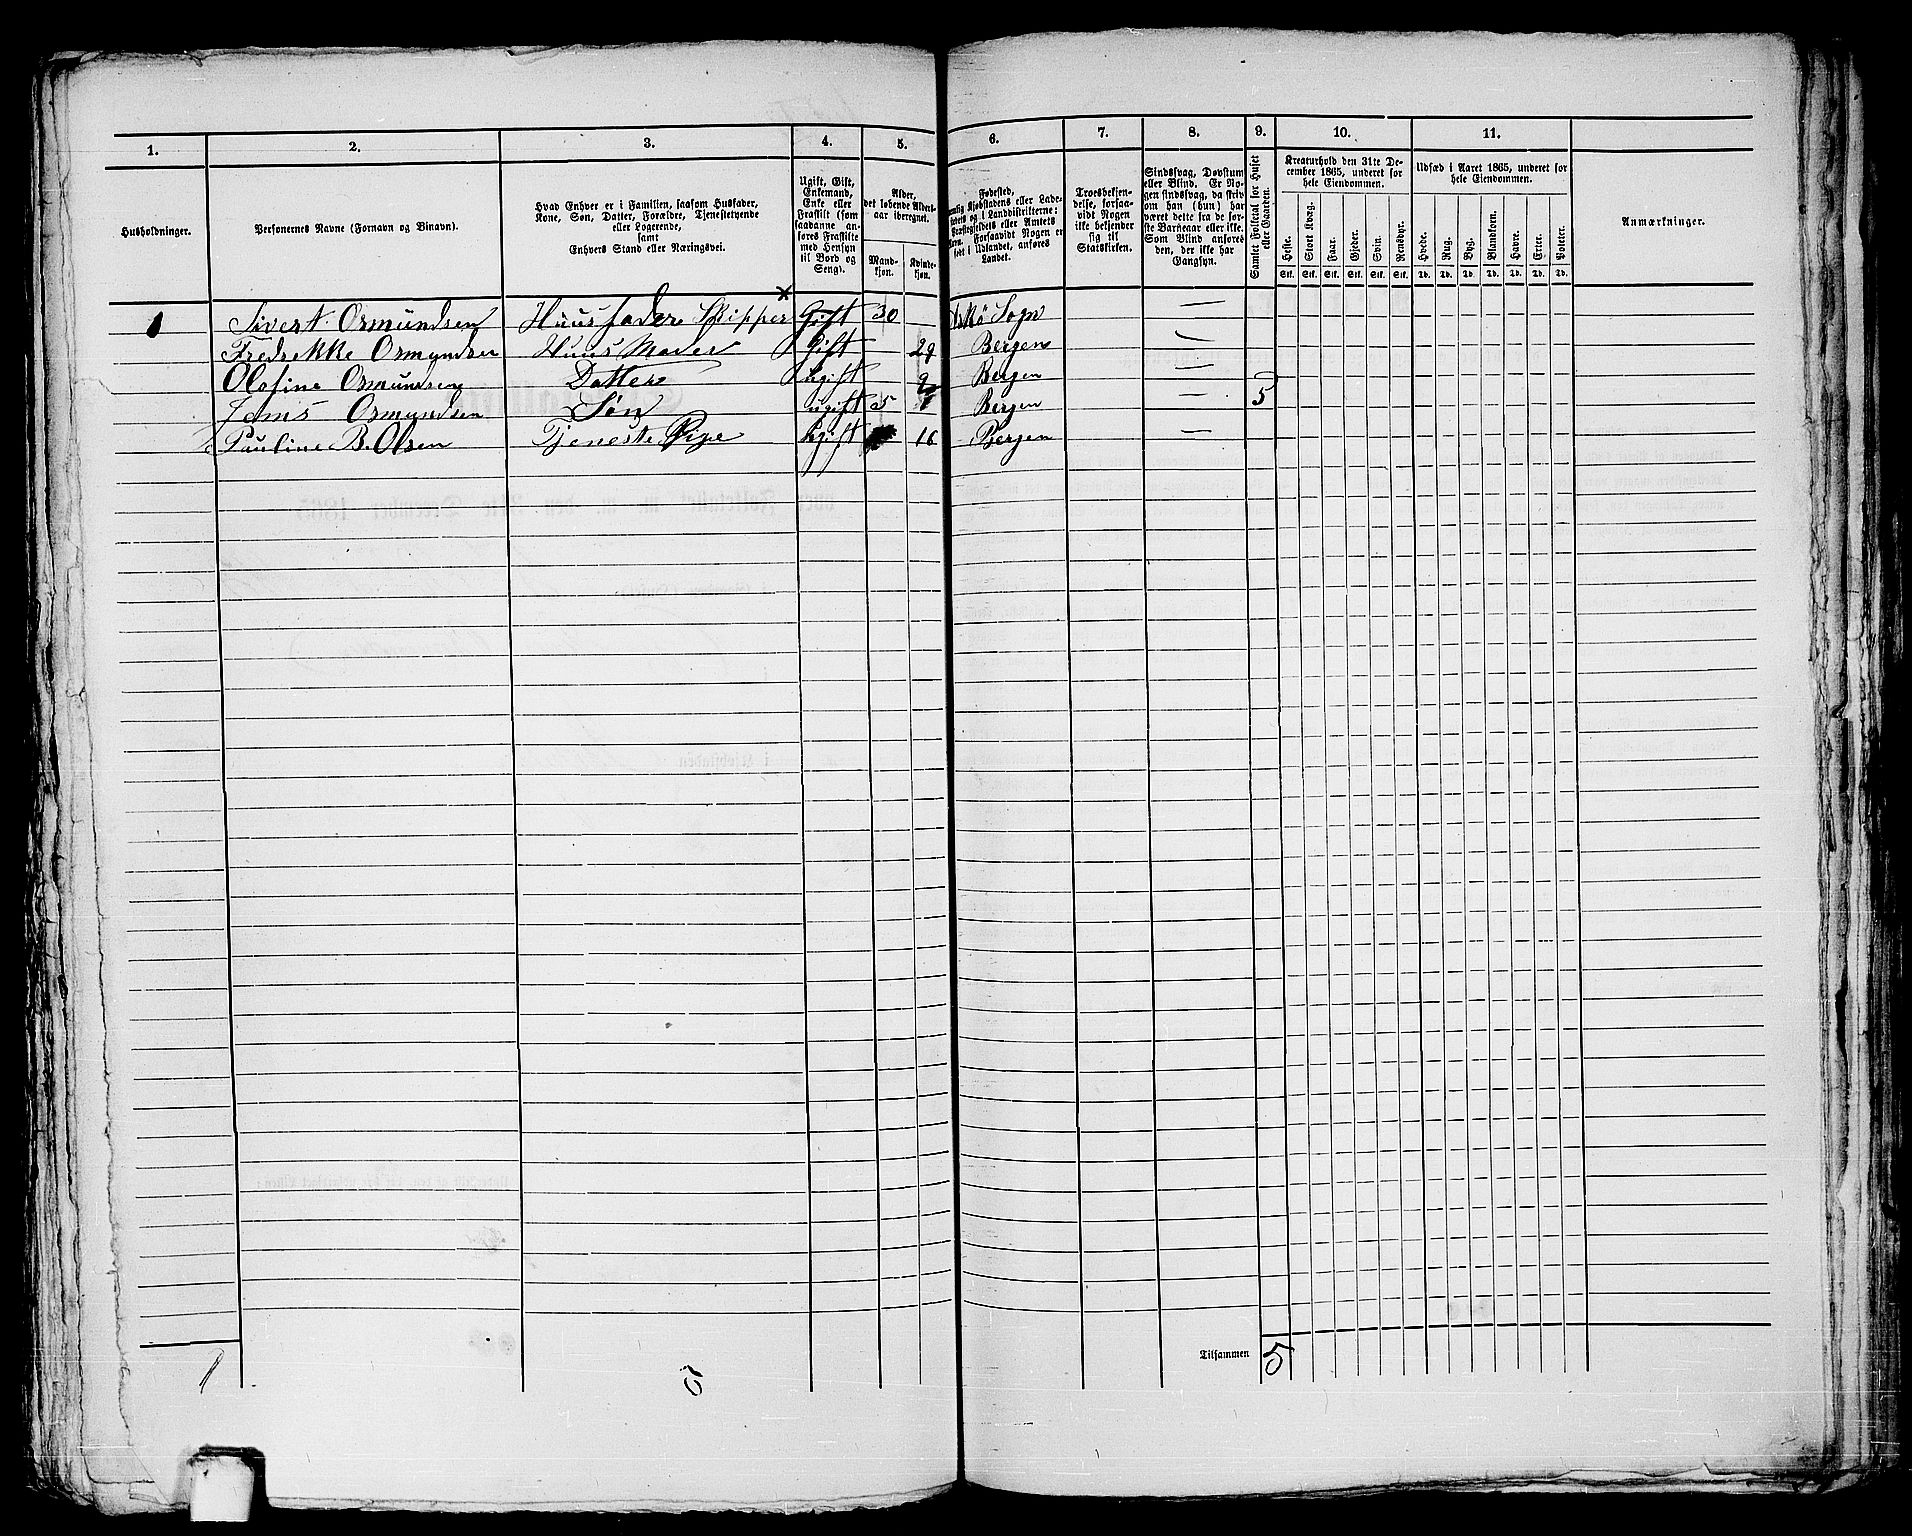 1. 2. 3. 4. 5. 6. 7. 8. 9. 10. 11.
Husholdninger.
Personernes Navne (Fornavn og Binavn).
Hvad Enhver er i Familien, saasom Husfader,
Kone, Søn, Datter, Forældre, Tjenestetyende
eller Logerende,
samt
Enhvers Stand eller Næringsvei.
Ugift, Gift,
Enkemand,
Enke eller
Fraskilt (som
saadanne an-
føres Fraskilte
med Hensyn
til Bord og
Seng).
Alder,
det løbende Alders-
aar iberegnet.
Mand-
kjøn.
Kvinde-
kjøn.
Fødested,
Kjøbstadens eller Lade-
og i Landdistrikterne:
Præstegjeldets eller Amtets
Navn. Forsaavidt Nogen er
født i Udlandet, anføres
Landet.
Troesbekjen-
delse, forsaa-
vidt Nogen
ikke bekjender
sig til
Statskirken.
Sindssvag, Døvstum
eller Blind. Er No-
gen sindssvag, da skriv
om han (hun) har
været dette fra de før-
ste Barneaar eller ikke.
Som Blind anføres
den, der ikke har
Gangsyn.
Samlet Folketal for Huset
eller Gaarden.
Kreaturhold den 31te De-
cember 1865, underet for
hele Eiendommen.
Heste. Stort Kvæg. Faar. Gjeder. Svin. Rensdyr.
Stk. Stk. Stk. Stk. Stk. Stk.
Udsæd i Aaret 1865, underet for
hele Eiendommen.
Hvede. Rug. Byg. Blandkorn. Havre. Erter. Poteter.
Td. Td. Td. Td. Td. Td. Td.
Anmærkninger.
1 Sivert Ormundsen Huusfader Skipper × Gift 30 Askö Sogn —
Fredrekke Ormundsen Huus Moder Gift 29 Bergen —
Olafine Ormundsen Datter ugift Bergen — 5
Jens Ormundsen Søn ugift 5 Bergen —
Pauline B. Olsen Tjeneste Pige ugift 16 Bergen —
1 5 Tilsammen 5